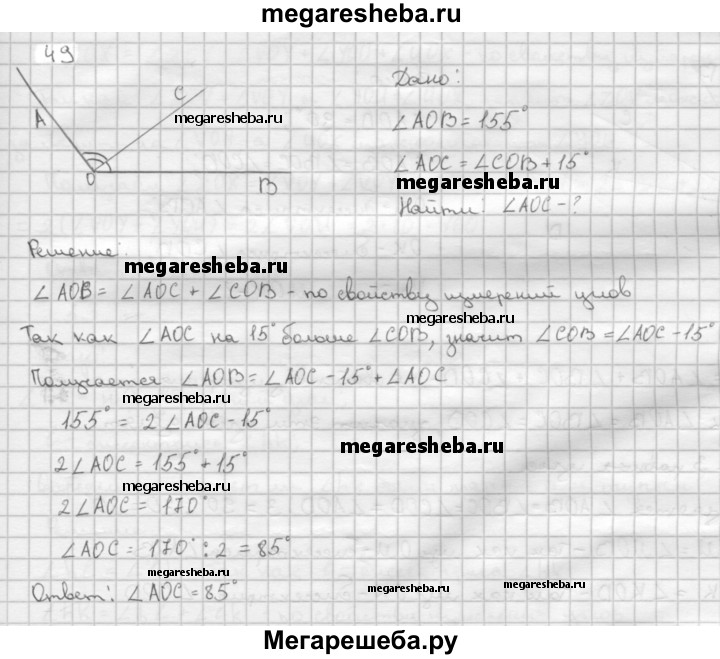 megaresheba.ru
49
Дано:
A
C
megaresheba.ru
∠AOB = 155°
∠AOC = ∠COB + 15°
O
B
megaresheba.ru
Найти: ∠AOC - ?
Решение:
megaresheba.ru
∠AOB = ∠AOC + ∠COB - по свойству измерений углов
megaresheba.ru
Так как ∠AOC на 15° больше ∠COB, значит ∠COB = ∠AOC - 15°
Получается ∠AOB = ∠AOC - 15° + ∠AOC
megaresheba.ru
155° = 2∠AOC - 15°
megaresheba.ru
2∠AOC = 155° + 15°
megaresheba.ru
2∠AOC = 170°
∠AOC = 170° : 2 = 85°
megaresheba.ru
Ответ: ∠AOC = 85°
megaresheba.ru
megaresheba.ru
Мегарешеба.ру